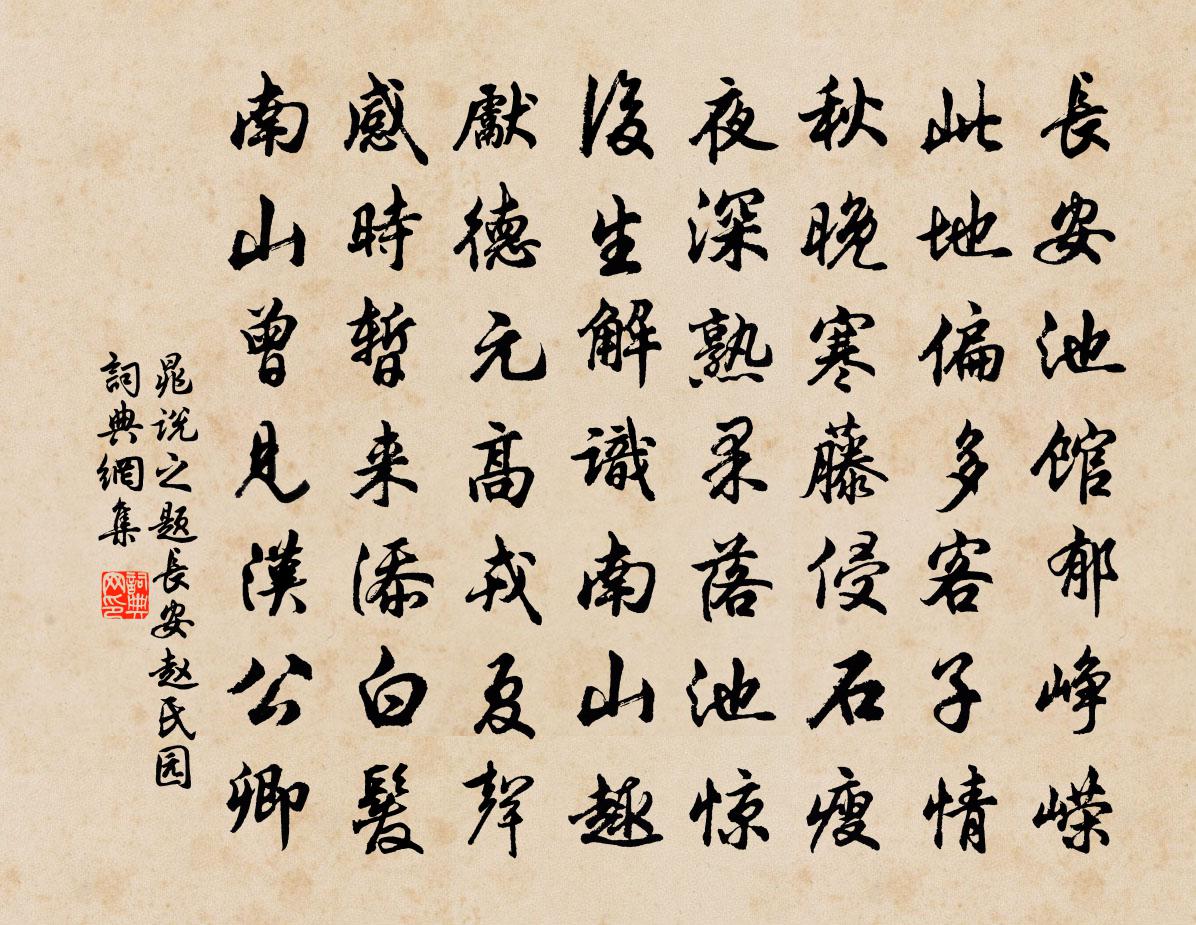 長安池館郁峥嵘
此地偏多客子情
秋晚寒藤侵石瘦
夜深熟果落池惊
後生解識南山趣
獻德元高戎夏聲
感時暫来添白髮
南山曾見漢公卿
晁说之题長安赵氏园
詞典網集
詞典网印